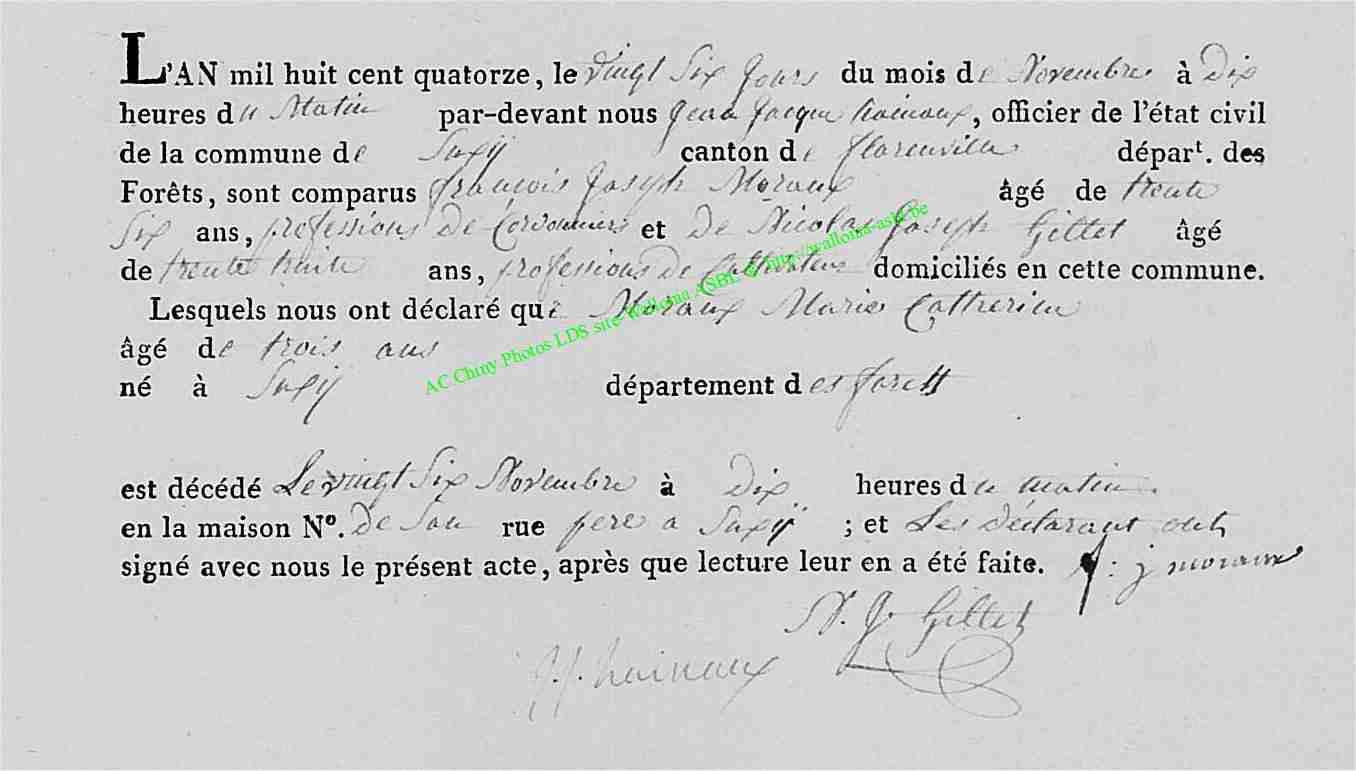 L'AN mil huit cent quatorze, le vingt Six Jours du mois de Novembre à Dix
heures du Matin par-devant nous Jean Jacque hainaux, officier de l'état civil
de la commune de Suxÿ canton de florenville départ. des
Forêts, sont comparus francois Joseph Moraux âgé de trente
Six ans, professions De Cordonniers et De Nicolas Joseph Gillet âgé
de trente huite ans, professions De Cultivateur domiciliés en cette commune.
Lesquels nous ont déclaré que Moraux Marie Catherine
âgé de trois ans
né à Suxÿ département des forett
AC Chiny Photos LDS site Wallonia ASBL © http://wallonia-asbl.be
est décédé Le vingt Six Novembre à Dix heures du matin.
en la maison Nº. De Son rue pere a Suxÿ ; et Les Déclarant ont
signé avec nous le présent acte, après que lecture leur en a été faite. f: j moraux
N. J. Gillet
J. J. hainaux